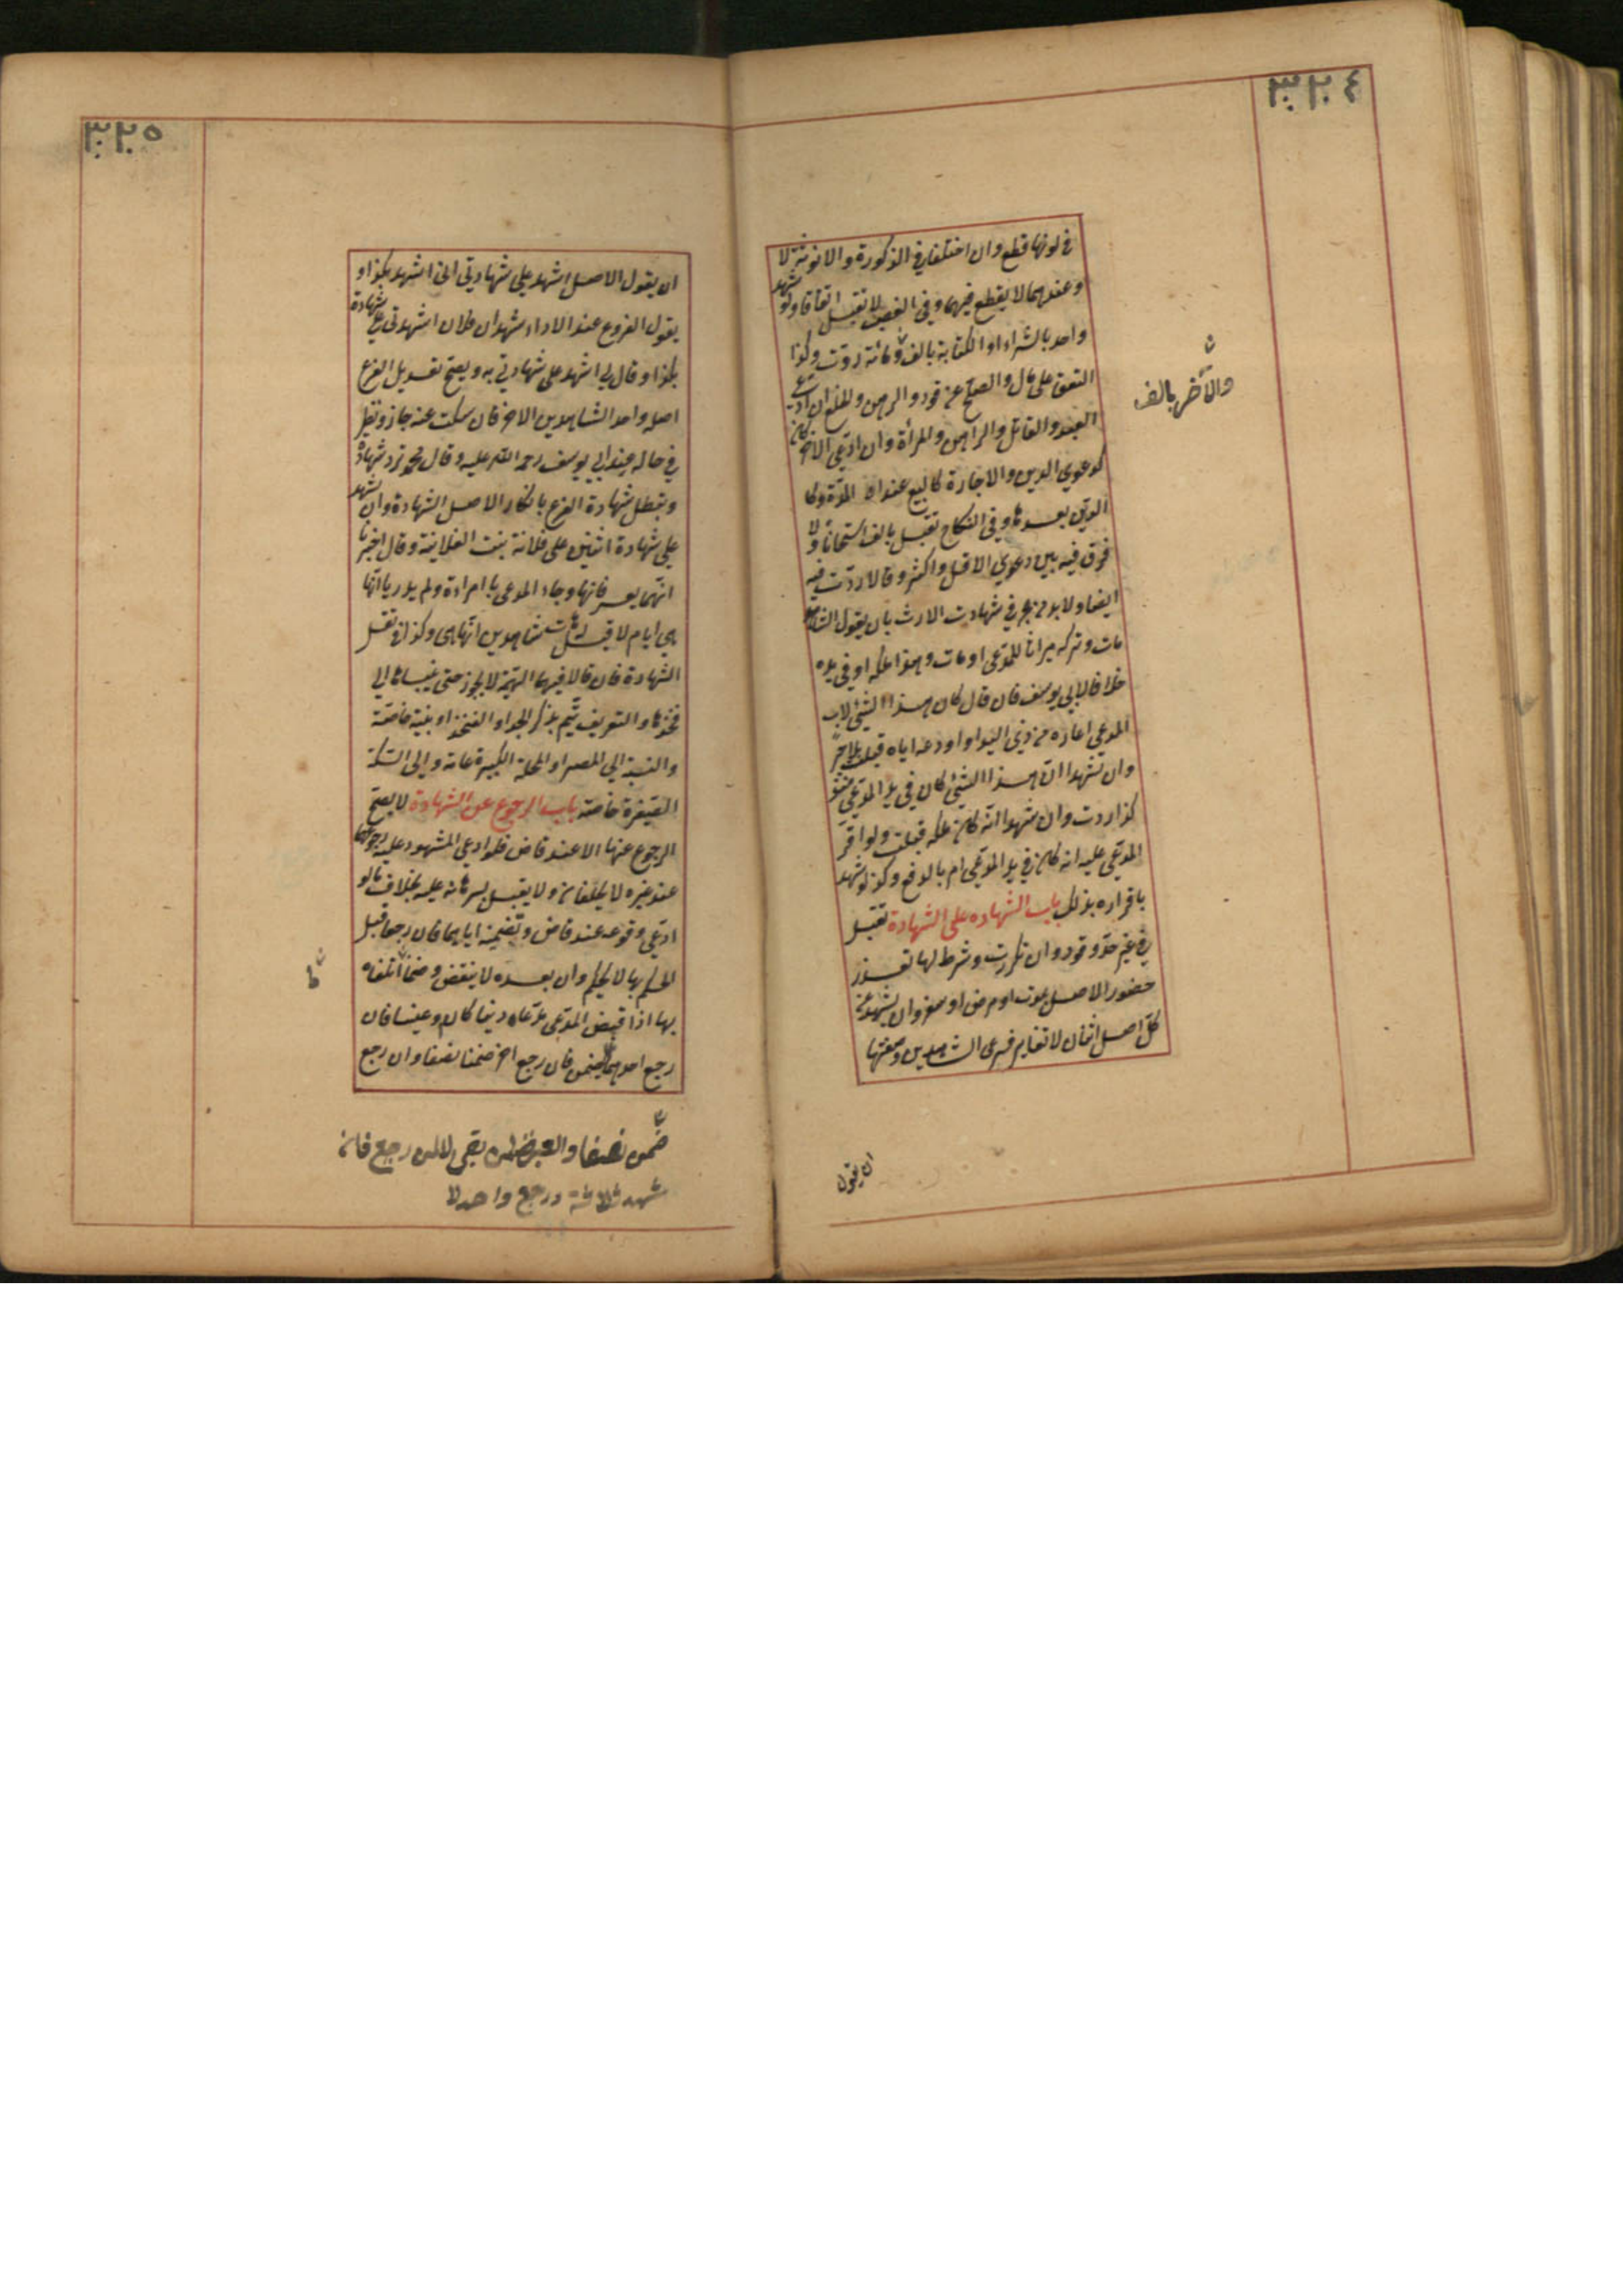 ٣٢٤
في لونها قطع وان اختلفا في الذكورة والانوثة لا
وعندهما لا يقطع فيهما وفي الغصب لا تقبل اتفاقا ولو شهد
واحد بالشراء او الكتابة بالف ومائة ردت وكذا
العتق على مال والصلح عن قود والرهن والخلع ان ادعى
العبد والقاتل والراهن والمرأة وان ادعى الاخر كان
كدعوى الدين والاجارة كالبيع عند اول المدة وكا
الدين بعدها وفي النكاح تقبل بالف استحسانا ولا
فرق فيه بين دعوى الاقل واكثر وقالا ردت فيه
ايضا ولا بد من الجر في شهادت الارث بان يقول الشاهد
مات وتركه ميراثا للمدعي او مات وهذا ملكه او في يده
خلافا لابي يوسف فان قال كان هذا الشئ لاب
المدعي اعاره من ذي اليد او اودعه اياه قبلت بلا جر
وان شهدا ان هذا الشئ كان في يد المدعي منذ
كذا ردت وان شهدا انه كان ملكه قبلت ولو اقر
المدعى عليه انه كان في يد المدعي امر بالدفع وكذا لو شهد
باقراره بذلك باب الشهاده على الشهادة تقبل
في غير حد وقود وان تكررت وشرط لها تعذر
حضور الاصل بموت او مرض او سفر وان يشهد عن
كل اصل اثنان لا تغاير فرعي الشاهدين وصفتها
والآخر بالف
ان يقول
٣٢٥
ان يقول الاصل اشهد علي شهادتي اني اشهد بكذا و
يقول الفروع عند الاداء اشهد ان فلان اشهدني علي شهادة
بكذا وقال لي اشهد على شهادتي به ويصح تعديل الفرع
اصله واحد الشاهدين الاخر فان سكت عنه جاز ونظر
في حاله عند ابي يوسف رحمه الله عليه وقال محمد ترد شهادة
وتبطل شهادة الفرع بانكار الاصل الشهادة وان شهد
علي شهادة اثنين على فلانة بنت الفلانية وقال اخبرنا
انهما يعرفانها وجاء المدعي بامراءة ولم يدريا انها
هي ام لا قيل له هات شاهدين انها هي وكذا نقل
الشهادة فان قالا فيهما التيمية لا يجوز حتى ينسباها الي
فخذها والتعريف يتم بذكر الجد او الفخذ او بنسبة خاصة
والنسبة الي المصر او المحلة الكبيرة عامة والى السكة
الصغيرة خاصة باب الرجوع عن الشهادة لا يصح
الرجوع عنها الا عند قاض فلو ادعي المشهود عليه رجوعهما
عند غيره لا يحلفان ولا يقبل برهانه عليه بخلاف ما لو
ادعي وقوعه عند قاض وتضمينه اياهما فان رجعا قبل
الحكم بها لا يحكم وان بعده لا ينقض وضمنا ما اتلفاه
بها اذا قبض المدعي مدعاه دينا كان او عينا فان
رجع احدهما يضمن فان رجع اخر ضمنا نصفا وان رجع
ضمن نصفا والعبرة لمن بقى لا لمن رجع فان
شهد ثلاثة ورجع واحد لا